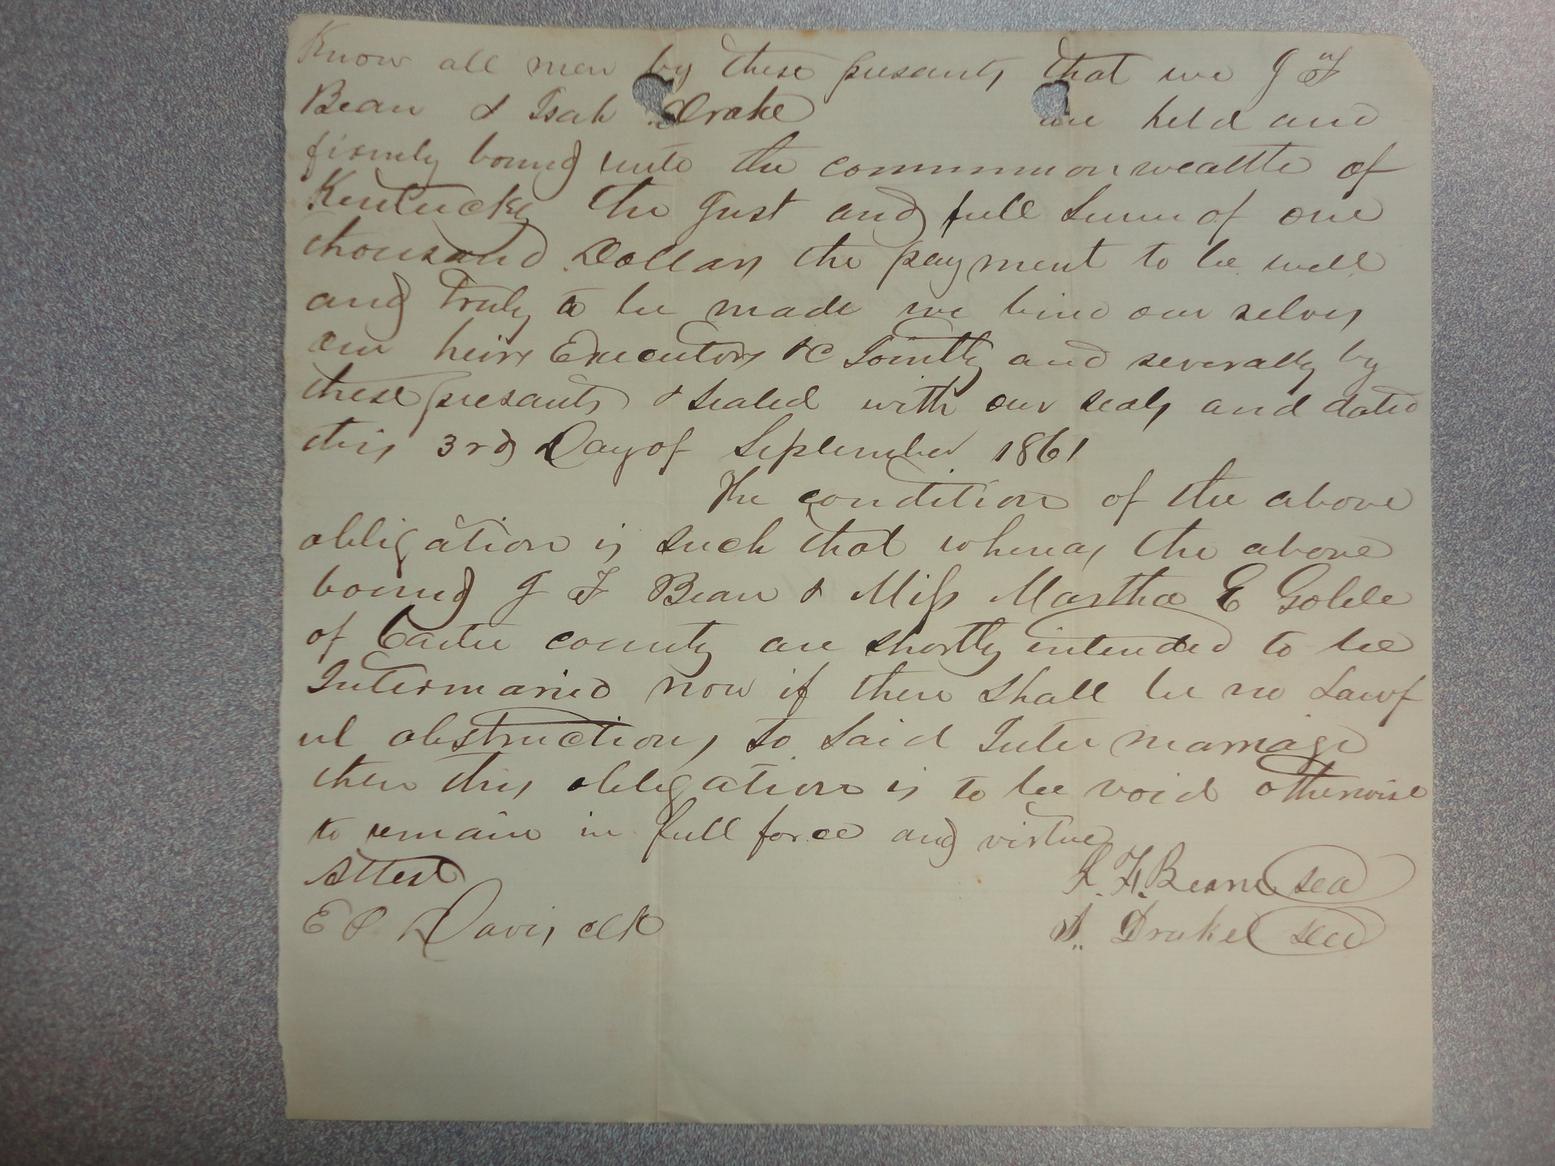 Know all men by these presants that we J F
Bean & Isah Drake are held and
firmly bound unto the commmonwealth of
Kentucky the Just and full Sum of one
thousand Dollars the payment to be well
and Truly to be made we bind our selves
our heirs Executors &C Jointly and severally by
these presants & Sealed with our seals and dated
this 3rd Day of September 1861
The condition of the above
obligation is such that whereas the above
bound J F Bean & Miss Martha E
of Carter county are shortly intended to be
Intermarried now if there shall be no Lawf
ul obstructions to Said Inter marriage
then this obligation is to be void otherwise
to remain in full force and virtue
Attest J. F. Bean seal
E P Davis clk Drake seal